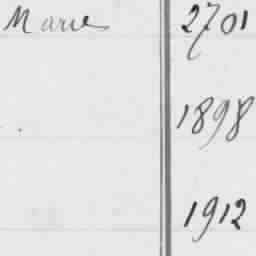 Marie 2701
1898
1912